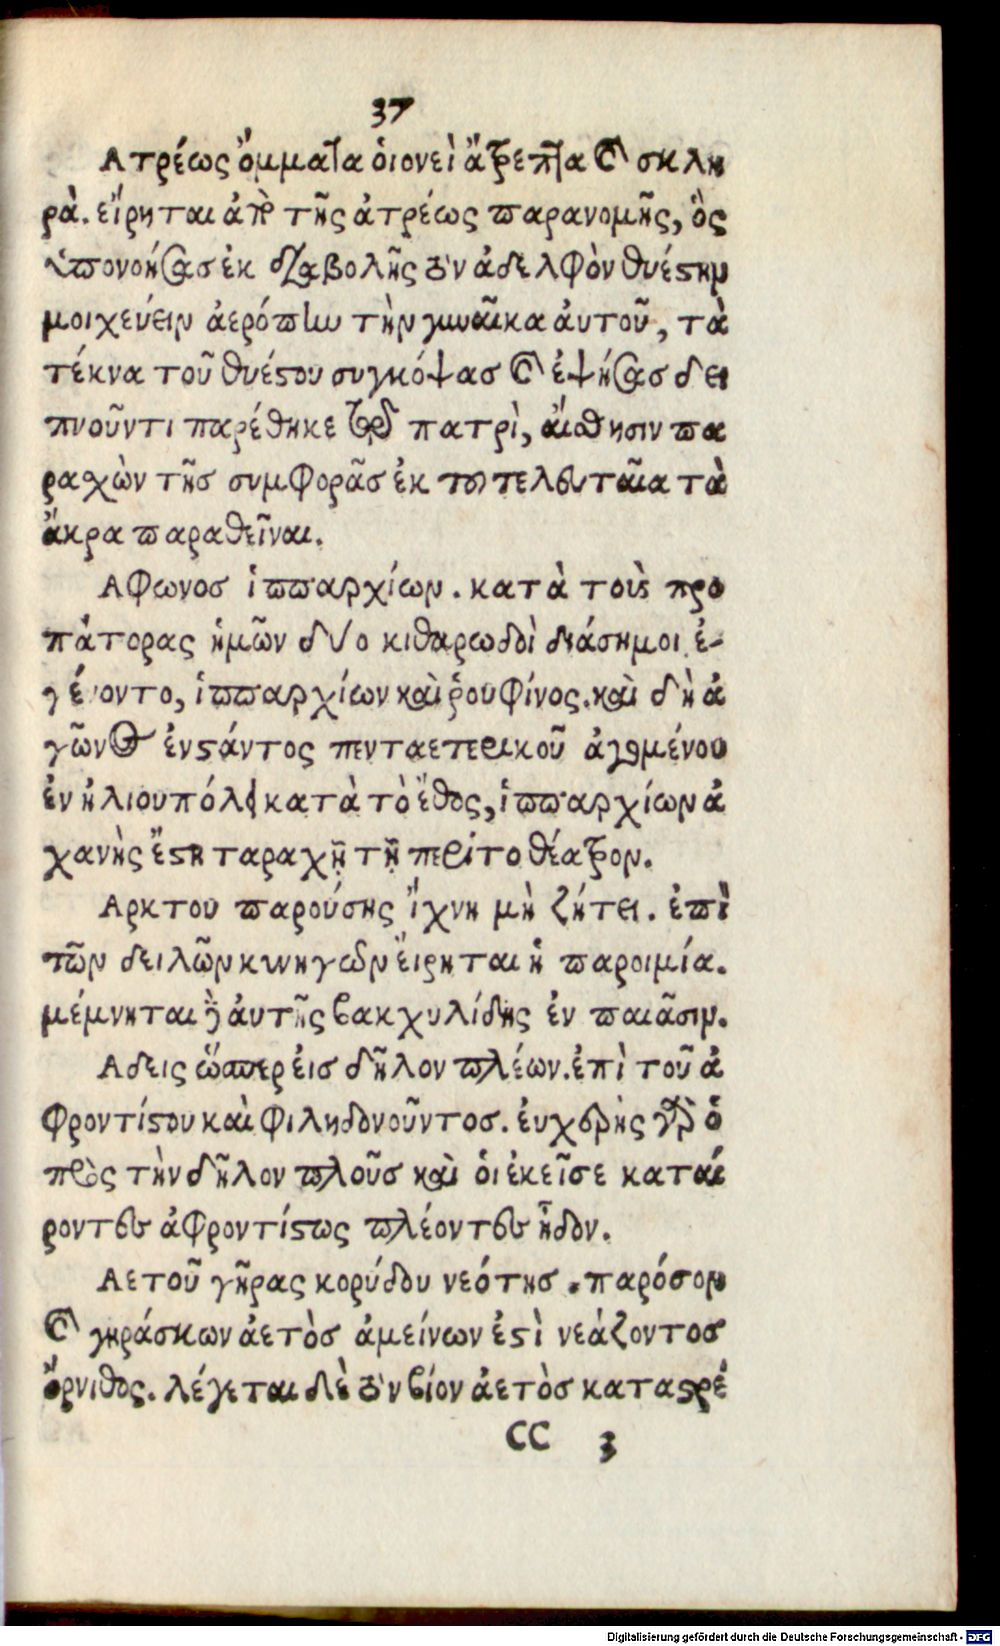 37
Ατρέως ὄμματα ὁιονεὶ ἄτρεπτα καὶ σκλη
ρὰ. ἔιρηται ἀπὸ τῆς ἀτρέως παρανομῆς, ὃς
ὑπονοήσασ ἐκ διαβολῆς τὸν ἀδελφὸν θυέστην
μοιχεύειν ἀερόπην τὴν γυναῖκα ἀυτοῦ, τὰ
τέκνα τοῦ θυέστου συγκόψασ καὶ ἐψήσασ δει
πνοῦντι παρέθηκε τῷ πατρὶ, ἄισθησιν πα
ραχὼν τῆσ συμφορᾶσ ἐκ τοῦ τελευταῖα τὰ
ἄκρα παραθεῖναι.
Αφωνοσ ἱππαρχίων. κατὰ τοὺς προ
πάτορας ἡμῶν δύο κιθαρωδοὶ διάσημοι ἐ-
γένοντο, ἱππαρχίων καὶ ῥουφίνος. καὶ δὴ ἀ
γῶνος ἐνστάντος πενταετερικοῦ ἀγομένου
ἐν ἡλιουπόλει κατὰ τὸ ἔθος, ἱππαρχίων ἀ
χανὴς ἔστη ταραχῇ τῇ περὶ το θέατρον.
Αρκτου παρούσης ἴχνη μὴ ζήτει. ἐπὶ
τῶν δειλῶν κυνηγῶν ἔιρηται ἡ παροιμία.
μέμνηται δὲ ἀυτῆς βακχυλίδης ἐν παιᾶσιν.
Αδεις ὥσπερ ἐισ δῆλον πλέων. ἐπὶ τοῦ ἀ
φροντίστου καὶ φιληδονοῦντοσ. ἐυχερὴς γὰρ ὁ
πρὸς τὴν δῆλον πλοῦσ καὶ ὁι ἐκεῖσε καταί
ροντες ἀφροντίστως πλέοντες ᾖδον.
Αετοῦ γῆρας κορύδου νεότησ. παρόσον
καὶ γηράσκων ἀετὸσ ἀμείνων ἐστὶ νεάζοντοσ
ὄρνιθος. λέγεται δὲ τὸν βίον ἀετὸσ καταστρέ
CC 3
Digitalisierung gefördert durch die Deutsche Forschungsgemeinschaft - DFG